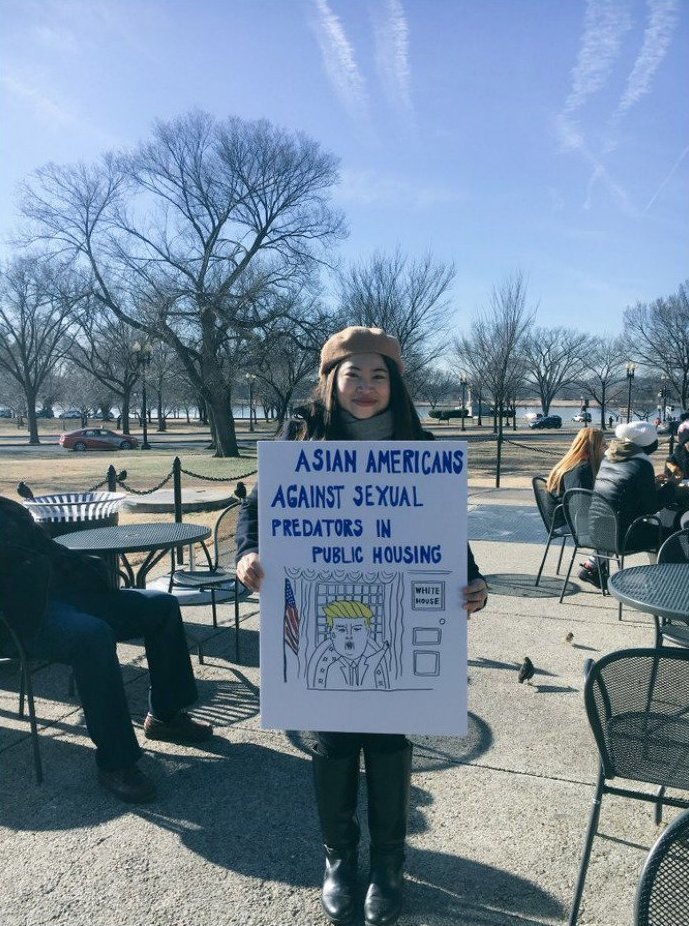 ASIAN AMERICANS
AGAINST SEXUAL
PREDATORS IN
PUBLIC HOUSING
WHITE
HOUSE